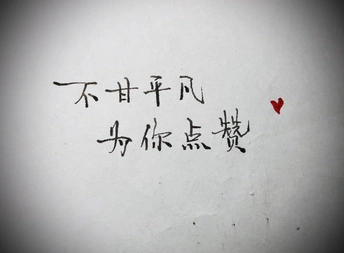 不甘平凡
为你点赞